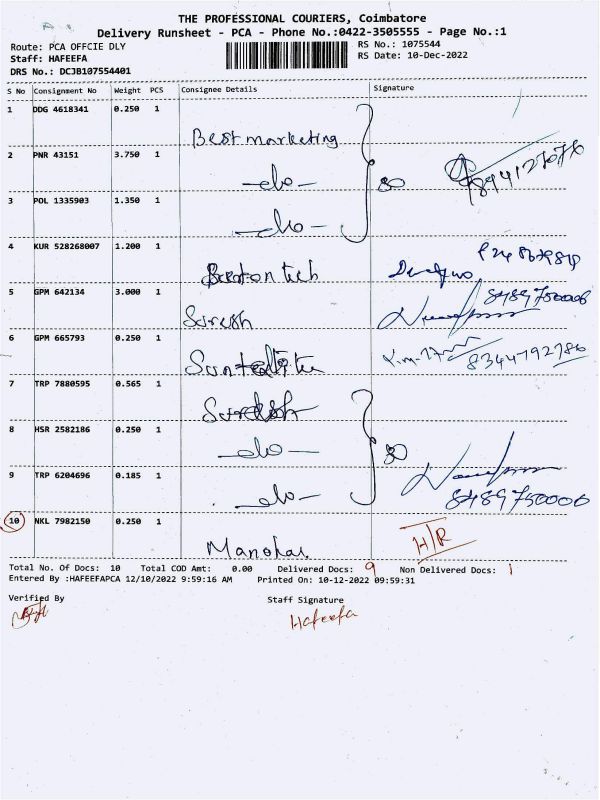 THE PROFESSIONAL COURIERS, Coimbatore
Delivery Runsheet - PCA - Phone No.:0422-3505555 - Page No.:1
Route: PCA OFFCIE DLY
RS No.: 1075544
Staff: HAFEEFA
RS Date: 10-Dec-2022
DRS No.: DCJB107554401
S No Consignment No Weight PCS Consignee Details Signature
1 DDG 4618341 0.250 1
Best marketing
2 PNR 43151 3.750 1
-do-
3 POL 1335903 1.350 1
-do-
4 KUR 528268007 1.200 1
5 GPM 642134 3.000 1
Suresh 8489750006
6 GPM 665793 0.250 1
8344792786
7 TRP 7880595 0.565 1
Suresh
8 HSR 2582186 0.250 1
-do-
9 TRP 6204696 0.185 1
-do- 8489750006
10 NKL 7982150 0.250 1
Manohar H/R
Total No. Of Docs: 10 Total COD Amt: 0.00 Delivered Docs: 9 Non Delivered Docs: 1
Entered By :HAFEEFAPCA 12/10/2022 9:59:16 AM Printed On: 10-12-2022 09:59:31
Verified By Staff Signature
Hafeefa